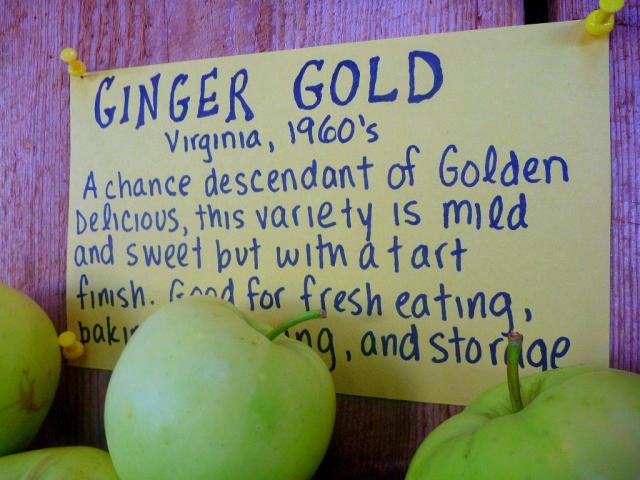 GINGER GOLD
Virginia, 1960's
A chance descendant of Golden
Delicious, this variety is mild
and sweet but with a tart
finish. Good for fresh eating,
and storage